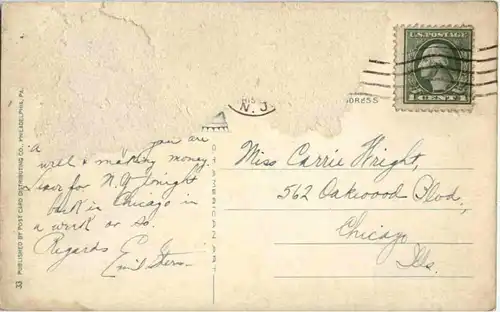 U.S. POSTAGE
N. J.
DRESS
you are
well & making money
leave for N.Y tonight
back in Chicago in
a week or so.
Regards
Emil
Miss Carrie Wright,
562 Oakwood Blvd,
Chicago
Ills.
33 PUBLISHED BY POST CARD DISTRIBUTING CO., PHILADELPHIA, PA.